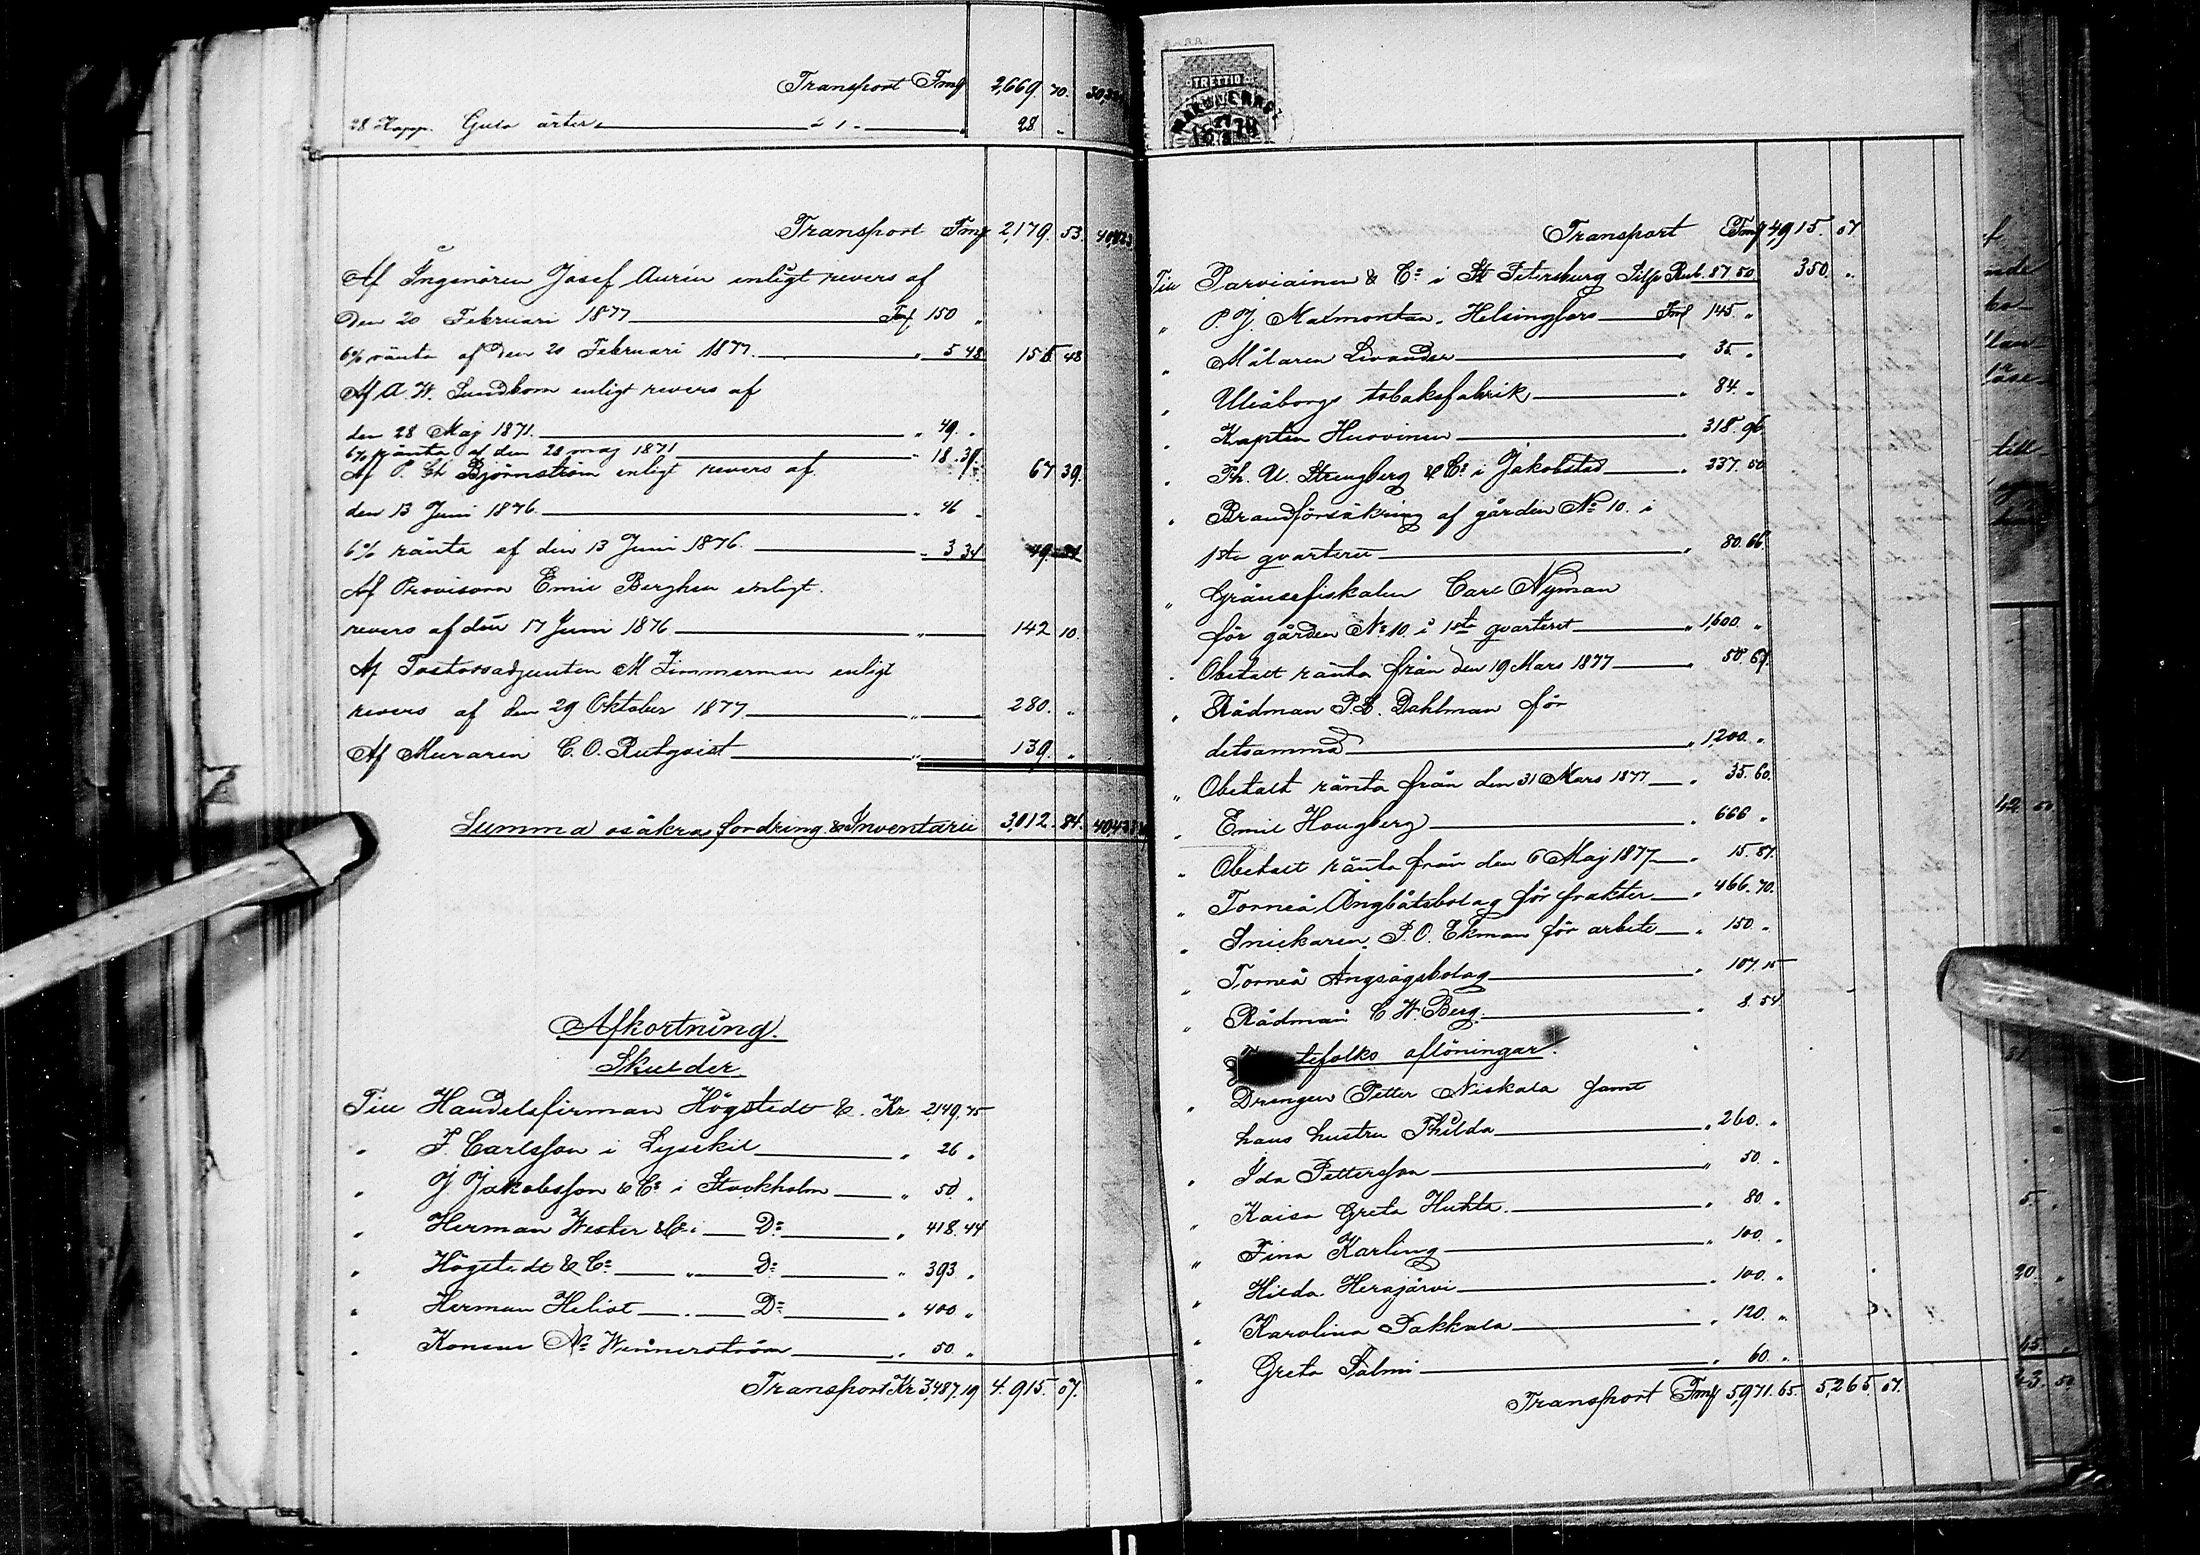 Transport Fmk 2,669. 70.
28 Kapp. Gula ärter " à 1 - " 28 "
Transport Fmk 2,179. 53.
Af Ingenören Josef Aurén enligt revers af
den 20 Februari 1877 Fmk 150 "
6% ränta af den 20 Februari 1877. " 5 48 155 48
Af A. W. Sundbom enligt revers af
den 28 Maj 1871. " 49. "
6% ränta af den 28 maj 1871 " 18. 39. 67 39.
Af P. Ch Björnström enligt revers af
den 13 Juni 1876. " 46 "
6% ränta af den 13 Juni 1876. " 3 34 49 34
Af Provisorn Emil Berghen enligt
revers af den 17 Juni 1876 " 142 10.
Af Pastorsadjunkten M Zimmerman enligt
revers af den 29 Oktober 1877 " 280. "
Af Muraren C. O. Rutqvist " 139. "
Summa osäkra fordring. & Inventarii 3,012. 84.
Afkortning.
Skulder
Till Handelsfirman Högstedt & C. Kr 2149. 75
" F. Carlsson i Lysekil " 26 "
" J Jakobsson & Co i Stockholm " 50. "
" Herman Wester & Co i Do " 418. 44
" Högstedt & Co " Do " 393 "
" Herman Heliot " Do " 400 "
" Konsul No Winnerström " 50. "
Transport Kr 3,487. 19 4,915. 07.
TRETTIO
Transport Fmk 4,915. 07
Till Parviainen & Co i St Petersburg Silfr Rub. 87. 50 350. "
" P. J. Malmontan. Helsingfors Fmk 145. "
" Målaren Livander " 35. "
" Uleåborgs tobaksfabrik " 84. "
" Kapten Huovinen " 318. 96
" Ph. U. Strengberg & Co i Jakobstad " 337. 50
" Brandförsäkring af gården No 10. i
1sta qvarteret " 80. 66
" Gränsefiskalen Carl Nyman
för gården No 10. i 1sta qvarteret " 1,600. "
" Obetalt ränta från den 19 Mars 1877 " 50. 67.
" Rådman P. L. Dahlman för
detsamma " 1,200. "
" Obetalt ränta från den 31 Mars 1877 " 35. 60.
" Emil Hougberg " 666 "
" Obetalt ränta från den 6 Maj 1877 " 15. 87.
" Torneå Ångbåtsbolag för frakter " 466. 70.
" Snickaren P. O. Ekman för arbete " 150. "
" Torneå Ångsågsbolag " 107. 15
" Rådman C W. Berg. " 8. 54
tefolks aflöningar.
" Drengen Petter Niskala samt
hans hustru Thilda " 260. "
" Ida Pettersson " 50. "
" Kaisa Greta Huhta. " 80 "
" Fina Karling " 100. "
" Hilda Herajärvi " 100. "
" Karolina Pakkala " 120. "
" Greta Salmi " 60. "
Transport Fmk 5,971. 65. 5,265 07.